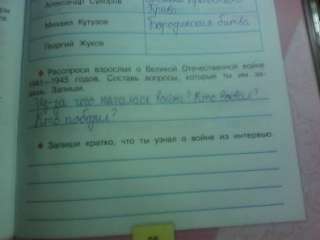 Александр Суворов
Михаил Кутузов Бородинская битва
Георгий Жуков
Расспроси взрослых о Великой Отечественной войне
1941—1945 годов. Составь вопросы, которые ты им за-
дашь. Запиши.
Из-за чего началась война? Кто воевал?
Кто победил?
Запиши кратко, что ты узнал о войне из интервью.